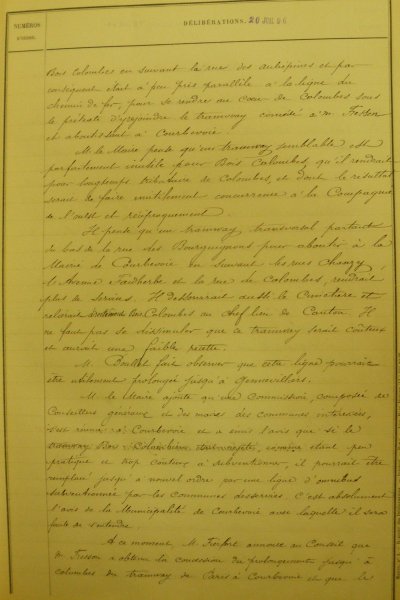 NUMÉROS
D'ORDRE.
DÉLIBÉRATIONS. 20
Bois Colombes en suivant la rue des aubépines et par
conséquent était à peu près parallèle à la ligne du
chemin de fer, pour se rendre au cœur de Colombes sous
le prétexte d'y rejoindre le tramway concédé à M. Tesson
et aboutissant à Courbevoie.
M. le Maire pense qu'un tramway semblable est
parfaitement inutile pour Bois Colombes, qu'il rendrait
pour longtemps tributaire de Colombes, et dont le résultat
serait de faire inutilement concurrence à la Compagnie
de l'ouest et réciproquement.
Il pense qu'un tramway transversal partant
du bas de la rue des Bourguignons pour aboutir à la
Mairie de Courbevoie en suivant les rues Chanzy,
l'Avenue Faidherbe et la rue de Colombes, rendrait
plus de services. Il desservirait aussi le Cimetière et
relierait Bois Colombes au chef lieu de Canton. Il
ne faut pas se dissimuler que ce tramway serait coûteux
et aurait une faible recette.
M. fait observer que cette ligne pourrait
être utilement prolongée jusqu'à Gennevilliers.
M. le Maire ajoute qu'une Commission, composée de
Conseillers généraux et des maires des communes intéressées,
s'est réunie à Courbevoie et a émis l'avis que si le
tramway Bois Colombien était rejeté, comme étant peu
pratique et trop coûteux à subventionner, il pourrait être
remplacé jusqu'à nouvel ordre par une ligne d'omnibus
subventionnée par les communes desservies. C'est absolument
l'avis de la Municipalité de Courbevoie avec laquelle il sera
facile de s'entendre.
A ce moment, M. annonce au Conseil que
M. Tesson a obtenu la concession du prolongement jusqu'à
Colombes du tramway de Paris à Courbevoie et que le